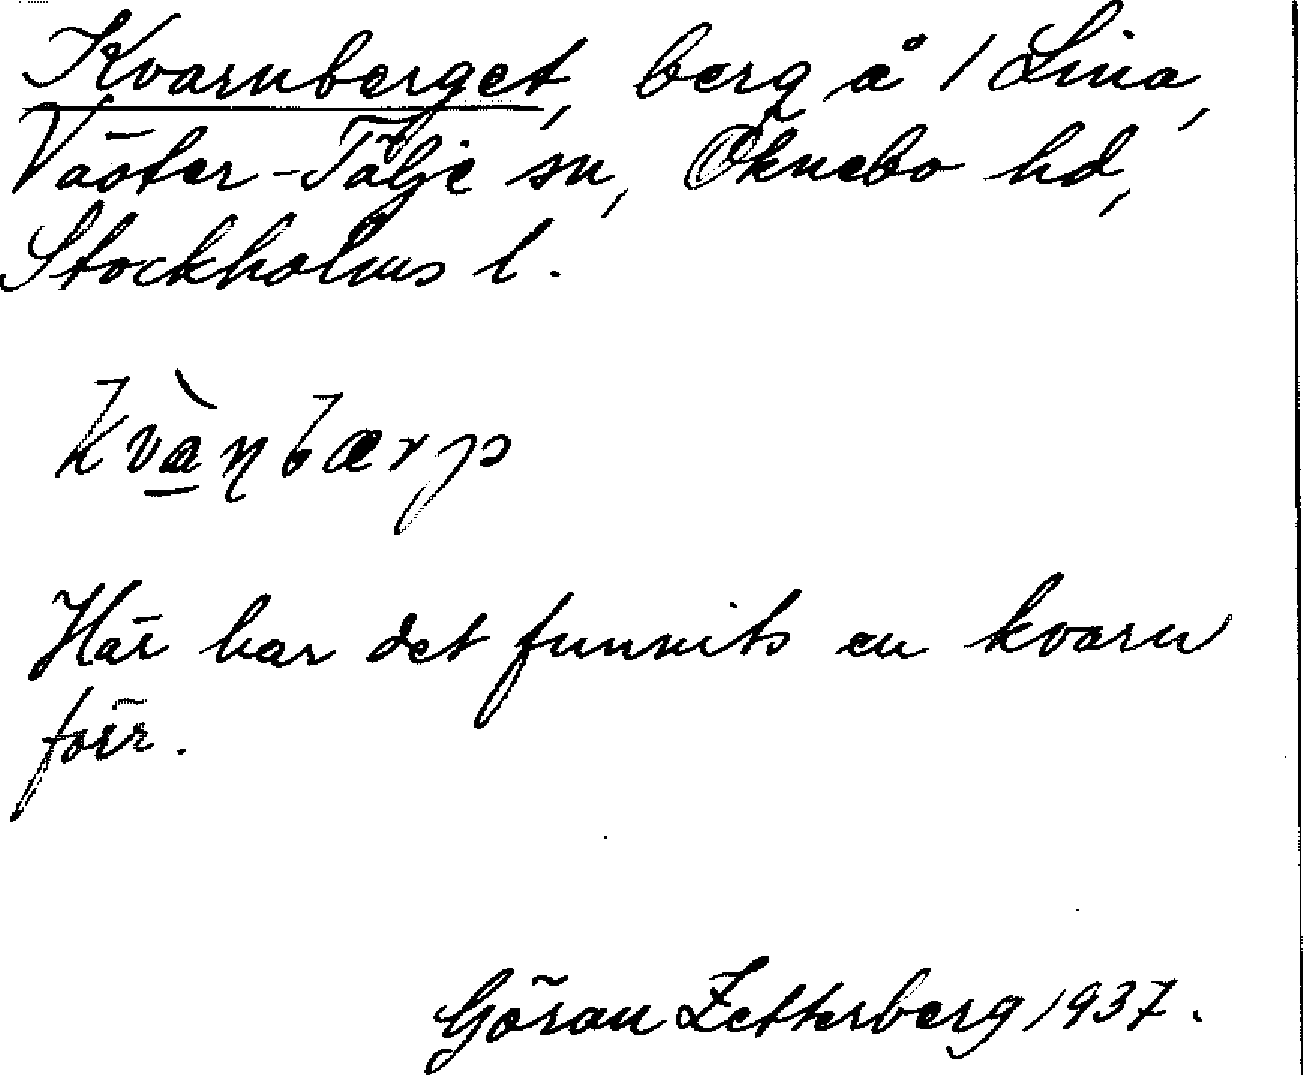 Kvarnberget, berg å 1 Lina,
Väster-Tälje sn, Öknebo hd,
Stockholms l.
Här har det funnits en kvarn
förr.
Göran Zetterberg 1937.